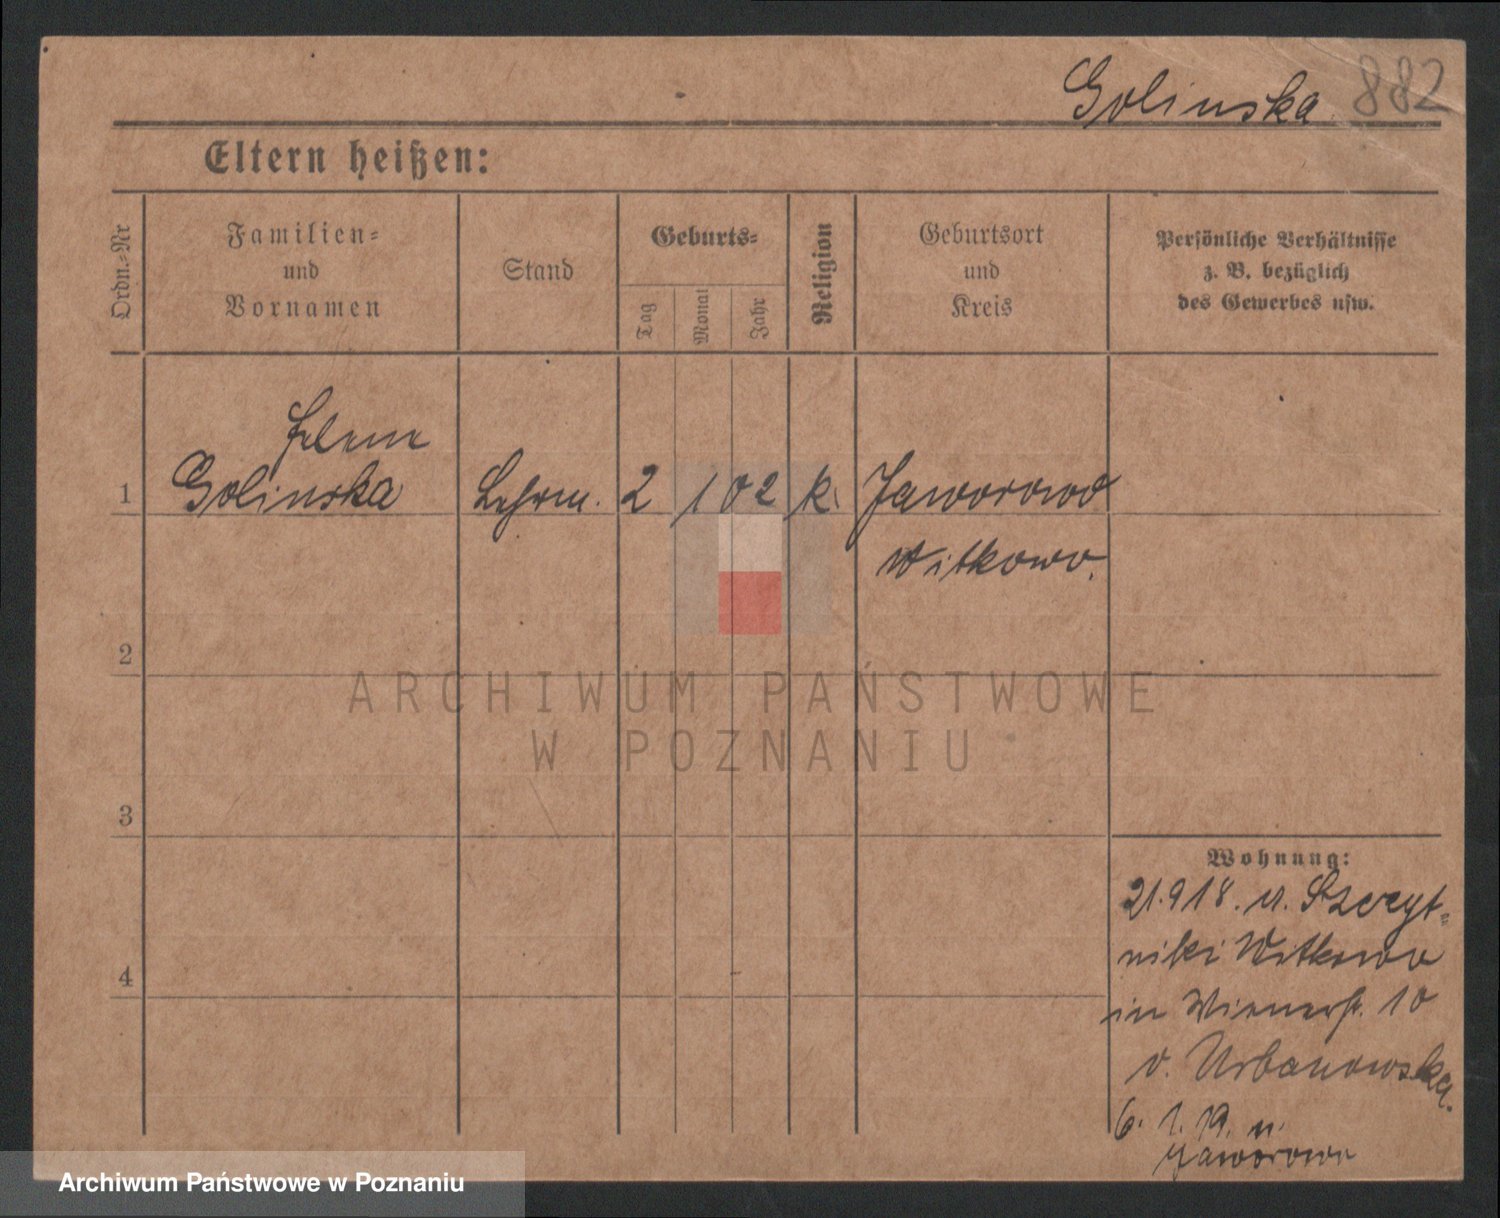 Golinska 882
Eltern heißen:
Ordn.-Nr
Familien-
und
Vornamen
Stand
Geburts-
Tag
Monat
Jahr
Religion
Geburtsort
und
Kreis
Persönliche Verhältnisse
z. B. bezüglich
des Gewerbes usw.
Helene
1 Golinska Lehrm. 2 1 02 k. Jaworowo
Witkowo.
2
3
4
ARCHIWUM PAŃSTWOWE
W POZNANIU
Wohnung:
21.9 18. v. Szczyt-
niki Witkowo
in Wienerstr. 10
v. Urbanowska.
6. 1. 19. n.
Jaworowo
Archiwum Państwowe w Poznaniu